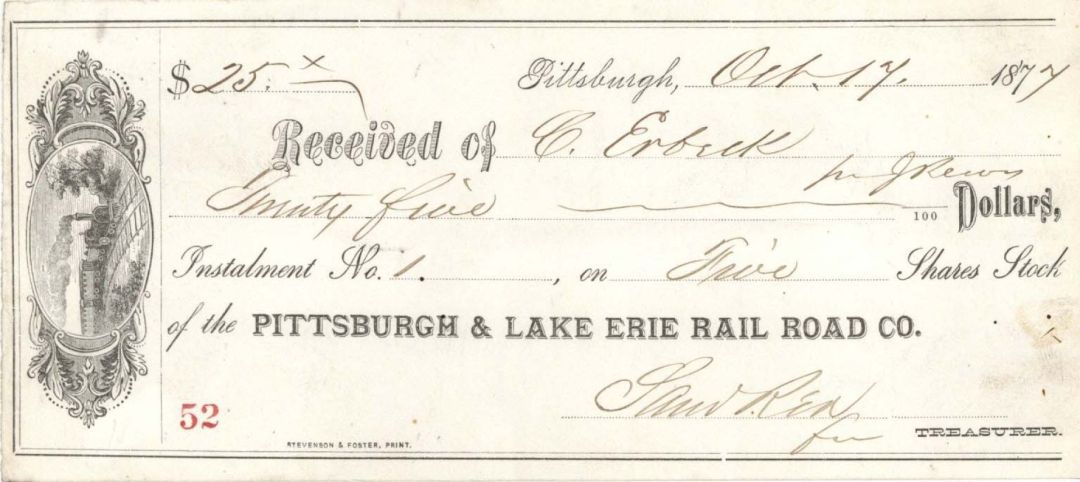 $ 25. x Pittsburgh, Oct. 17. 1877
Received of C. Erbeck
Twenty five 100 Dollars,
Instalment No. 1. , on Five Shares Stock
of the PITTSBURGH & LAKE ERIE RAIL ROAD CO.
52 TREASURER.
STEVENSON & FOSTER, PRINT.